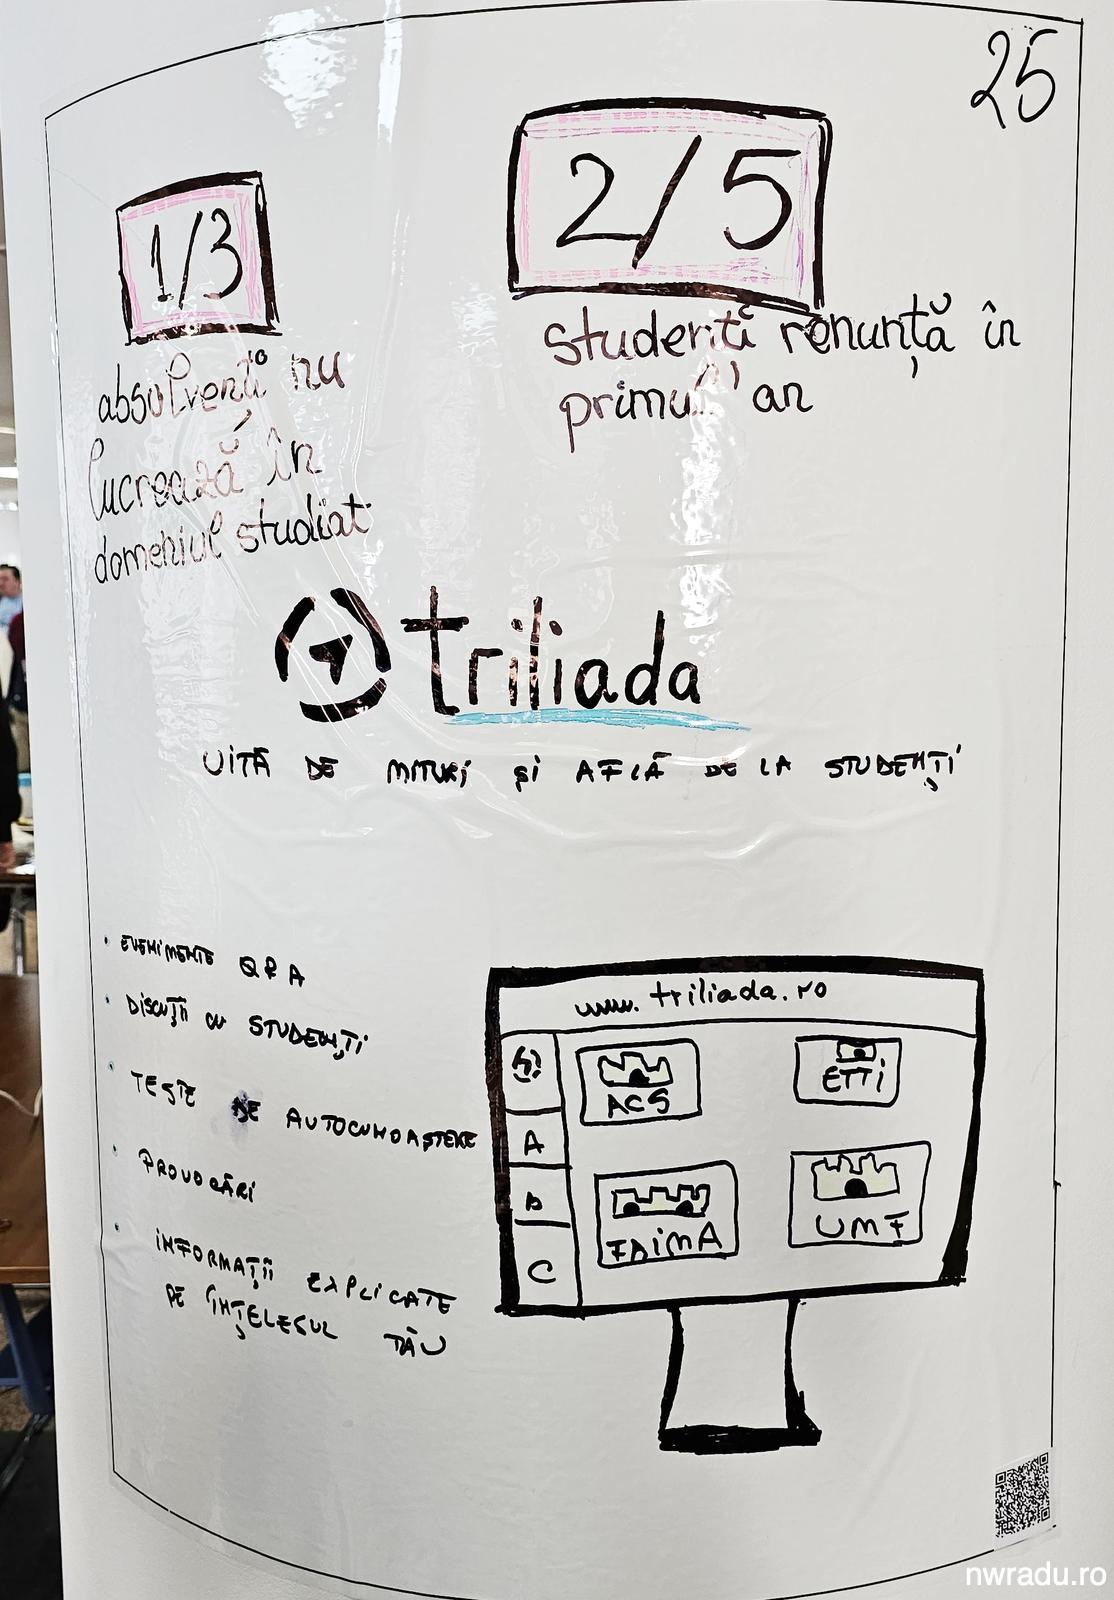 25
1/3
absolvenți nu
lucrează în
domeniul studiat
2/5
studenți renunță în
primul an
triliada
UITĂ DE MITURI ȘI AFLĂ DE LA STUDENȚI
• EVENIMENTE Q&A
• DISCUȚII CU STUDENȚI
• TESTE DE AUTOCUNOAȘTERE
• PROVOCĂRI
• INFORMAȚII EXPLICATE
PE ÎNȚELESUL TĂU
www.triliada.ro
A
B
C
ACS
ETTI
FAIMA
UMF
nwradu.ro